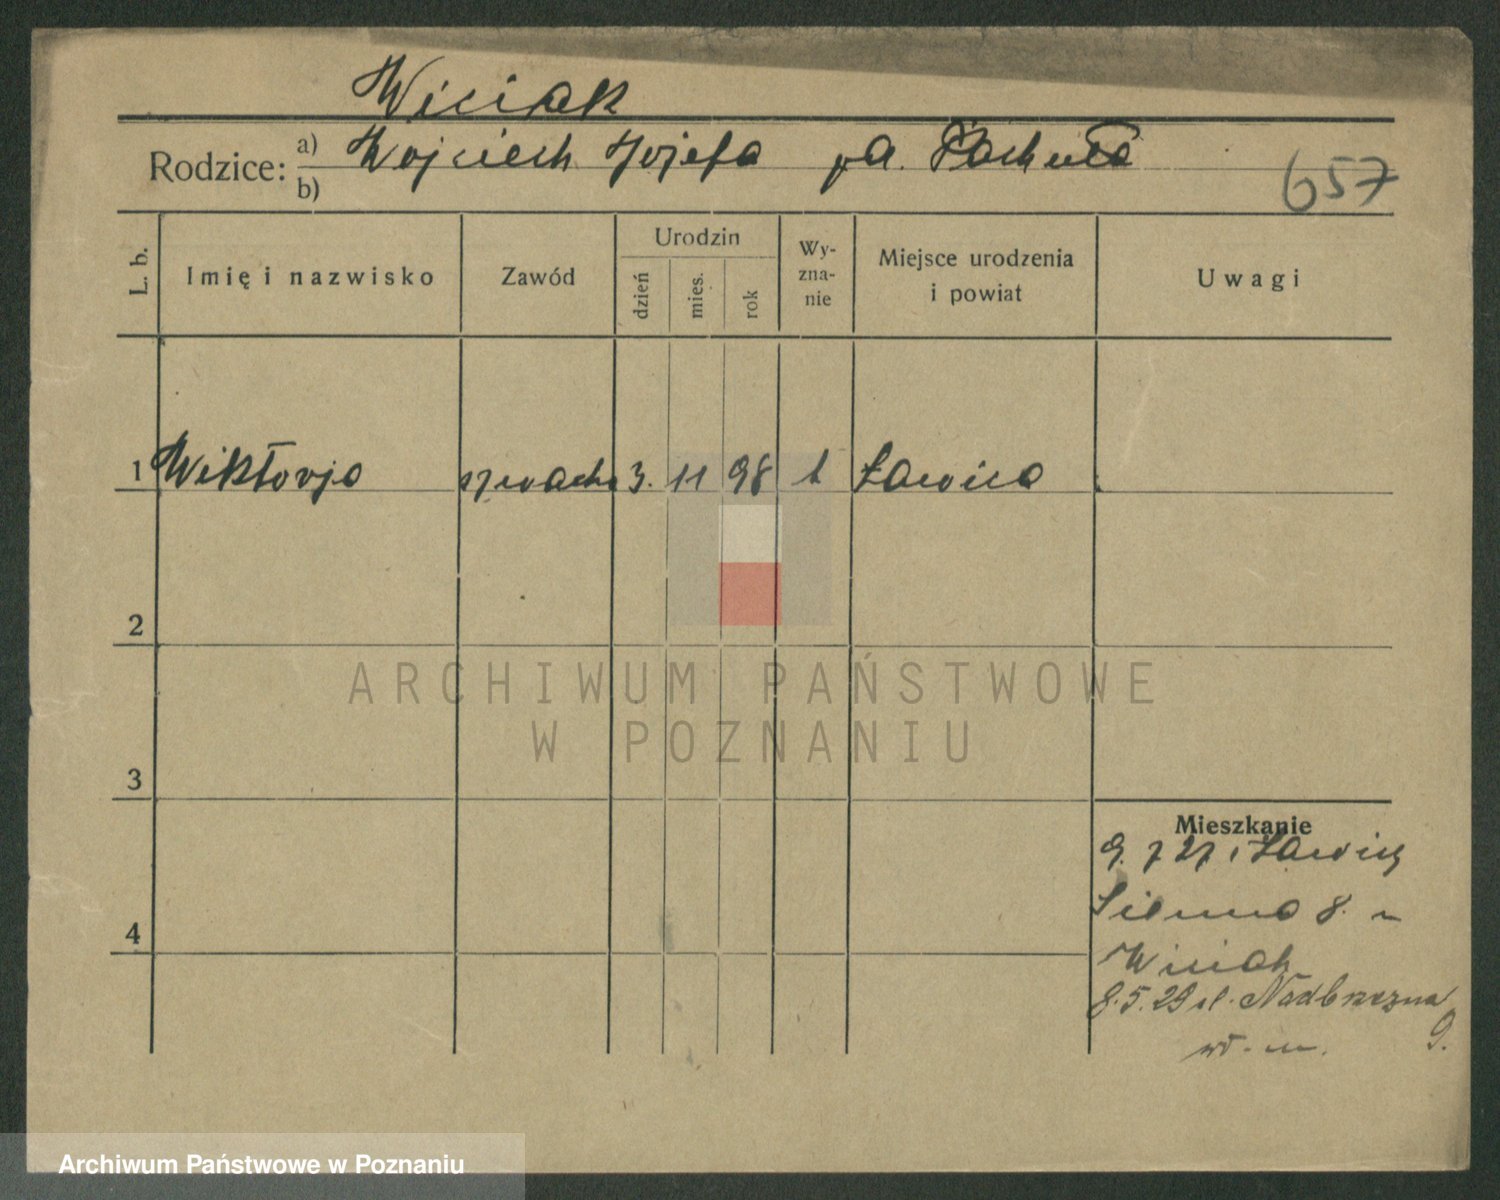 Wiciak
Rodzice: a) Wojciech Jozefa
b)
657
L. b. Imię i nazwisko Zawód Urodzin dzień mies. rok Wy-zna-nie Miejsce urodzenia i powiat Uwagi
1 Wiktorja szwacha 3. 11 98 Ławica
2
3
4
Mieszkanie
9. 7 27 Ławicy
8.
Wiciak
8.5.29 ul. Nadbrzezna
9.
ARCHIWUM PAŃSTWOWE
W POZNANIU
Archiwum Państwowe w Poznaniu